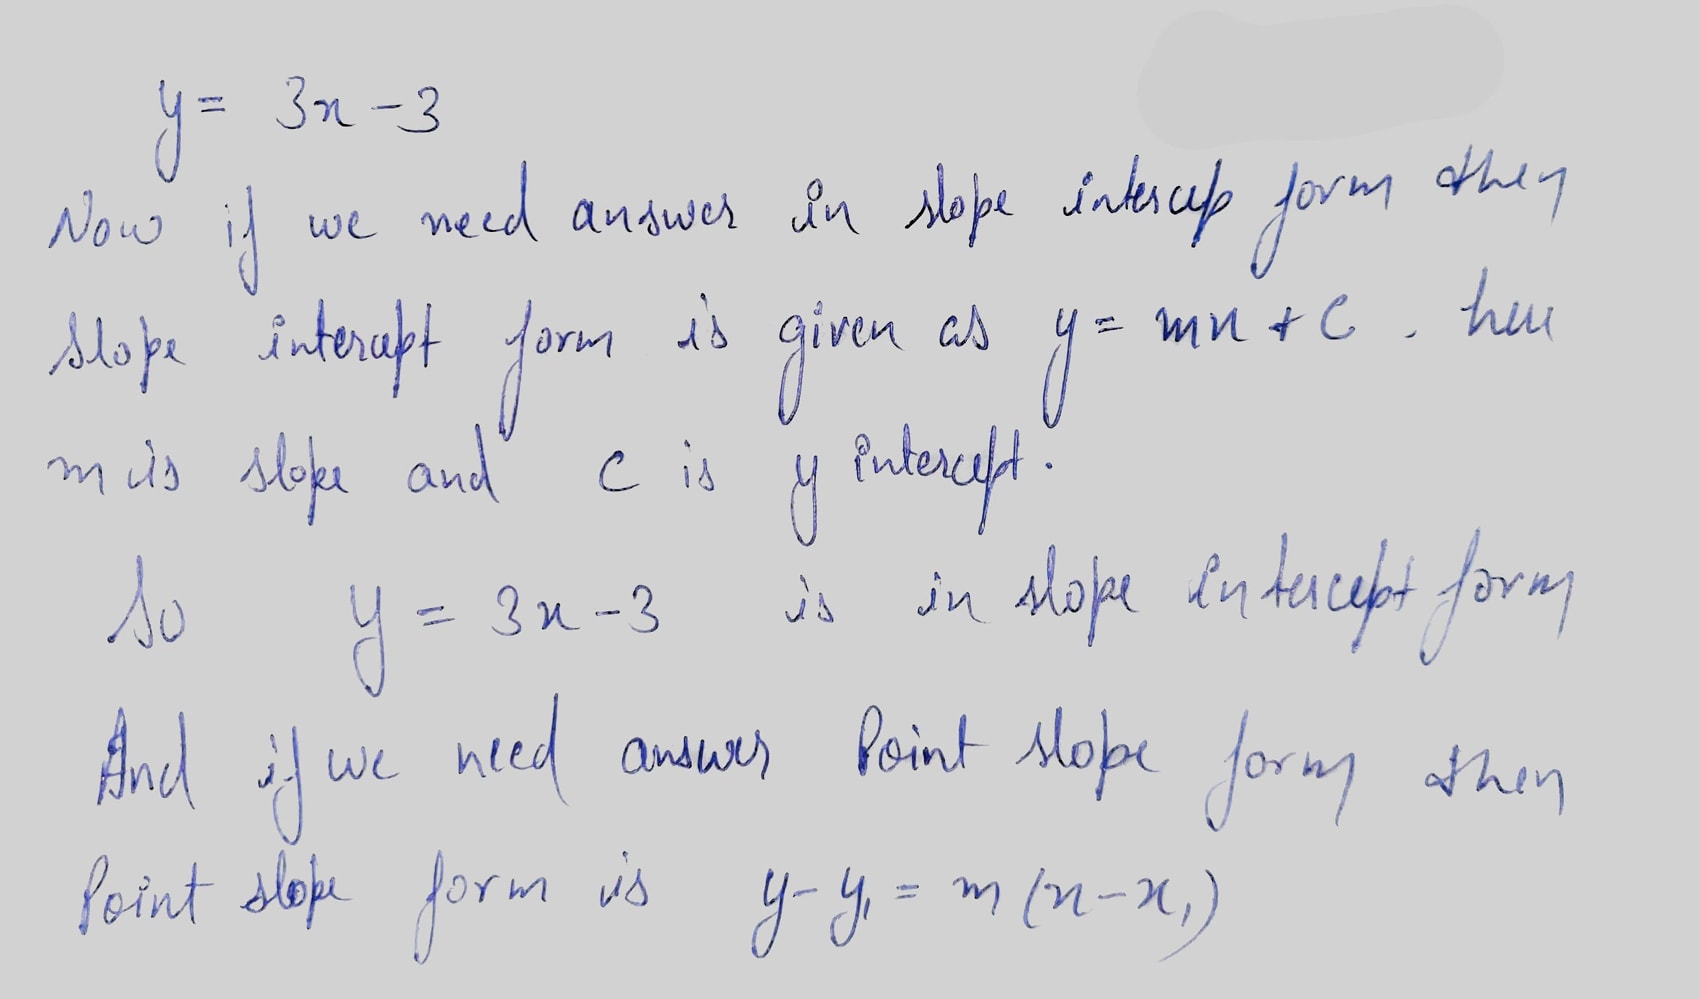 y = 3x - 3
Now if we need answer in slope intercep form then
slope intercept form is given as y = mx + C . here
m is slope and C is y intercept.
So y = 3x - 3 is in slope intercept form
And if we need answer Point slope form then
Point slope form is y - y₁ = m (x - x₁)